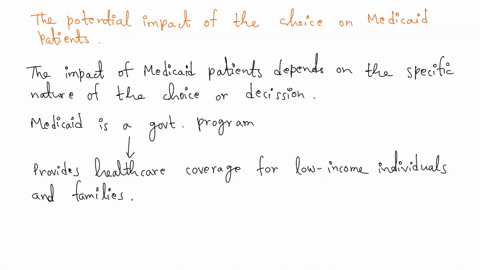 The potential impact of the choice on Medicaid
patients.
The impact of Medicaid patients depends on the specific
nature of the choice or decission.
Medicaid is a govt. program
Provides healthcare coverage for low-income individuals
and families.